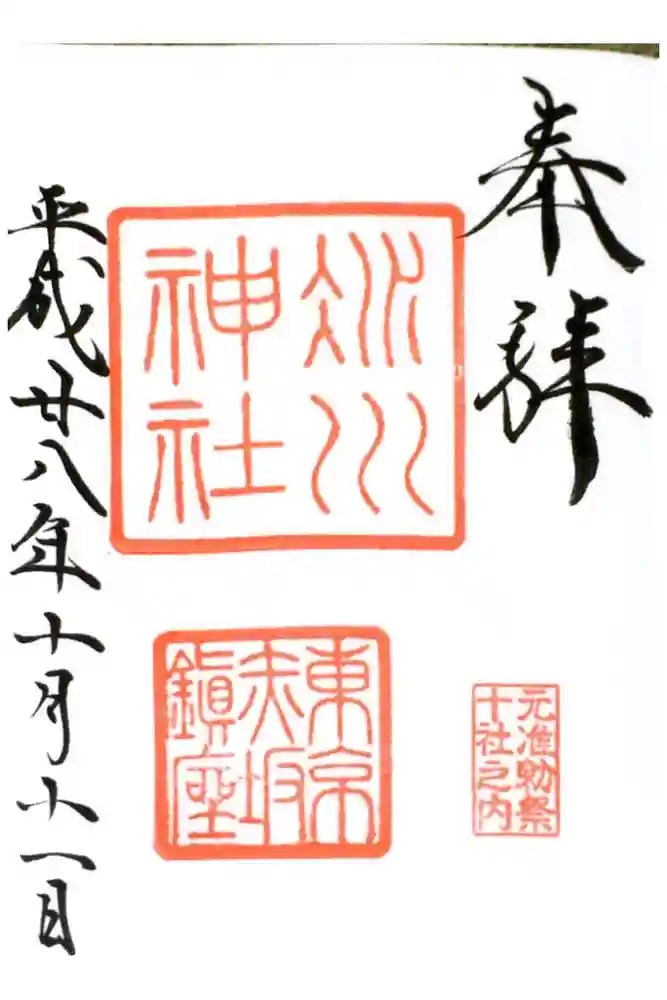 奉拝
冰川
神社
東京
赤坂
鎭座
元准勅祭
十社之内
平成廿八年十月十一日